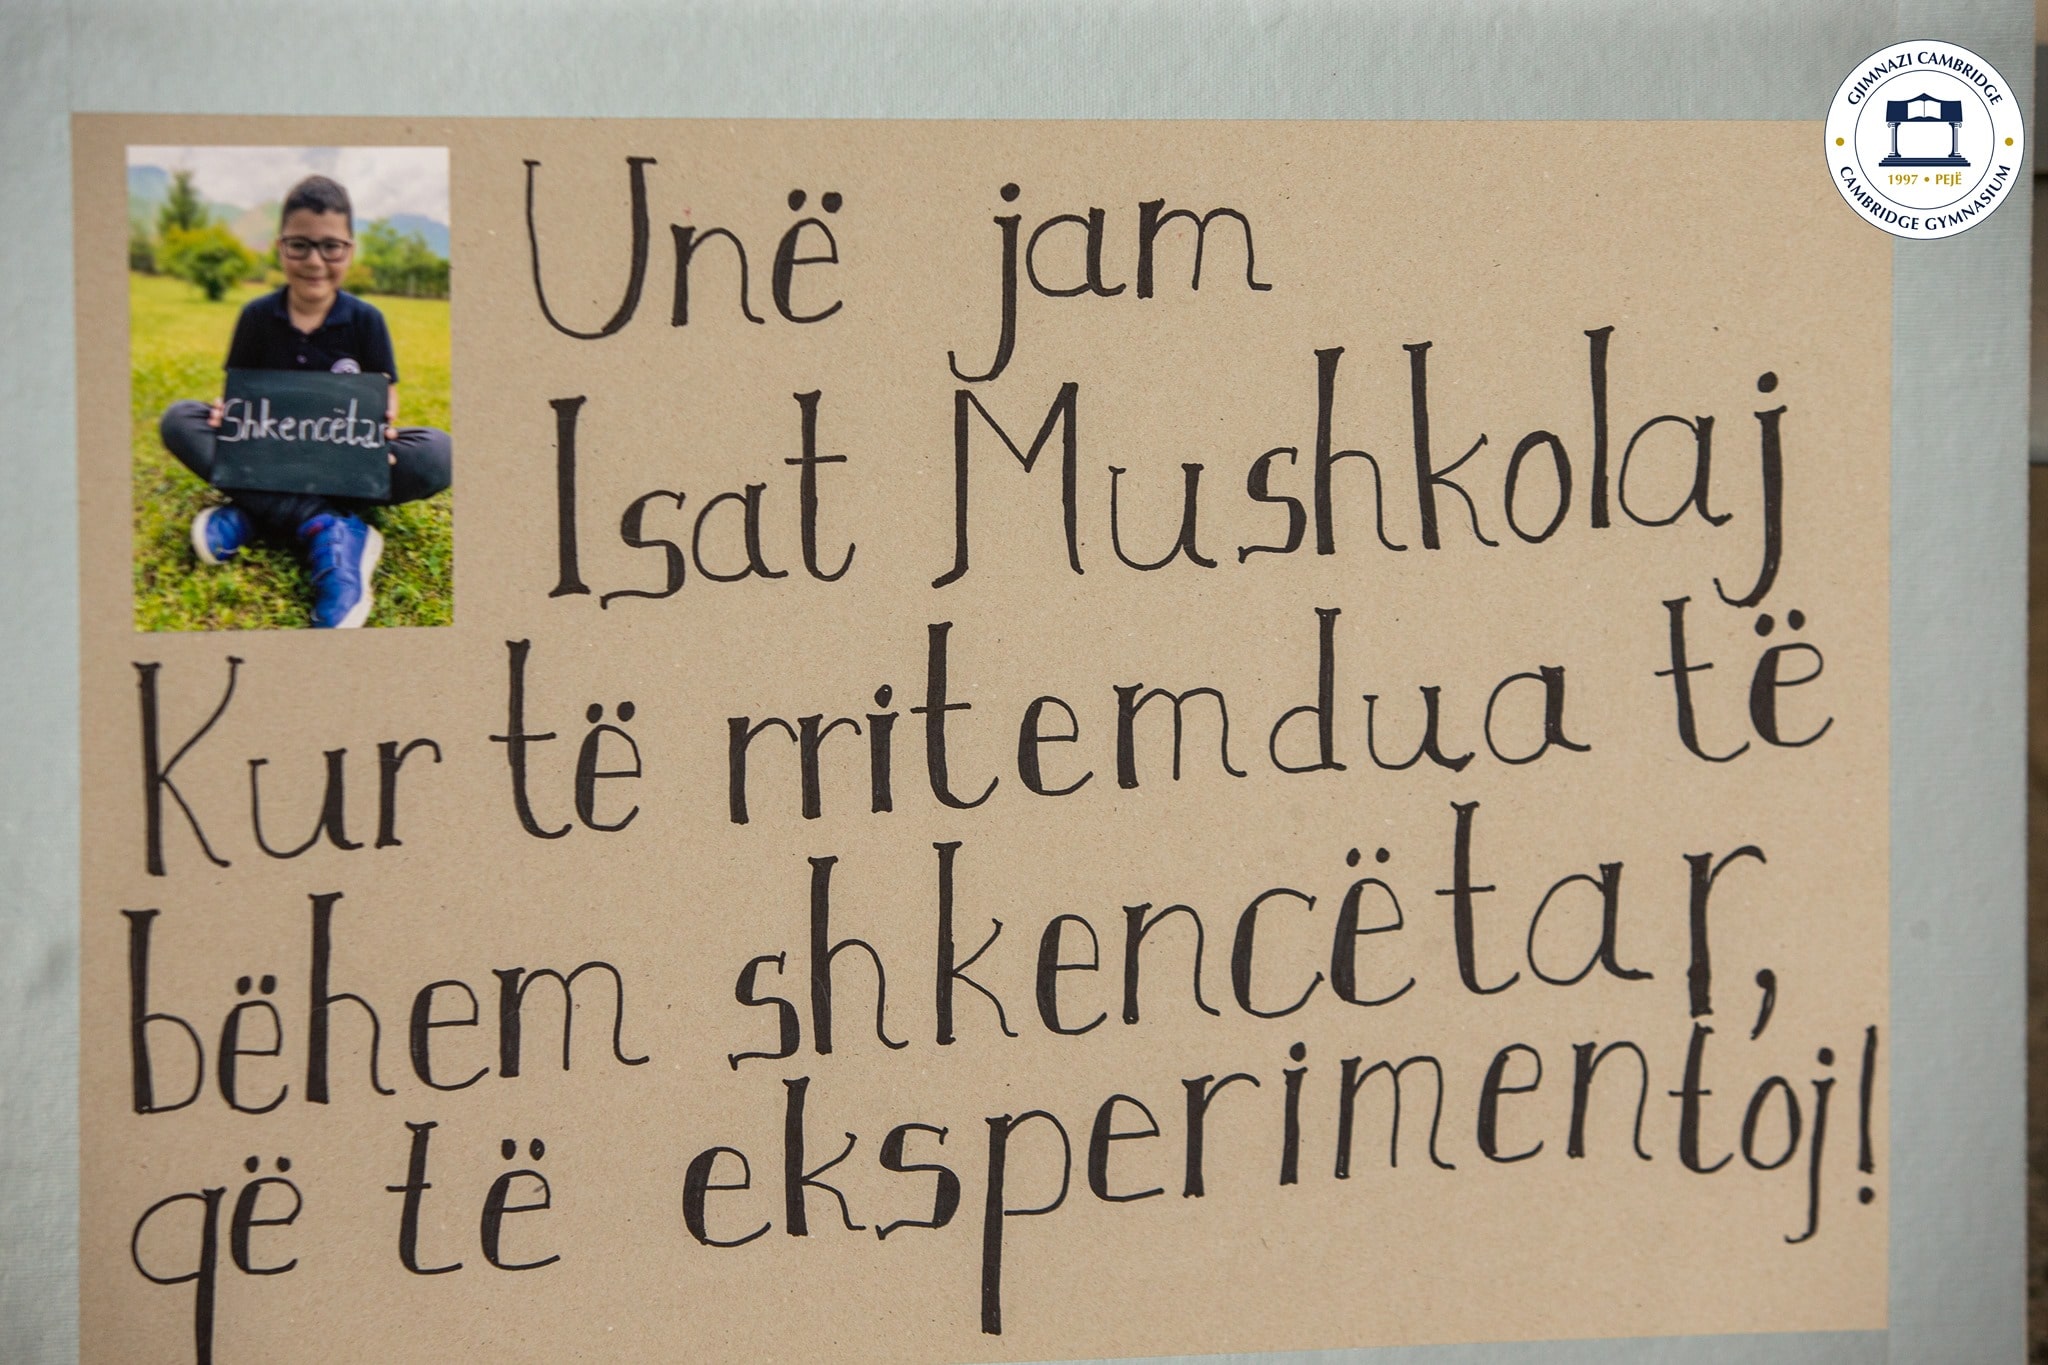 GJIMNAZI CAMBRIDGE
1997 • PEJË
CAMBRIDGE GYMNASIUM
Shkencëtar
Unë jam
Isat Mushkolaj
Kur të rritem dua të
bëhem shkencëtar,
që të eksperimentoj!